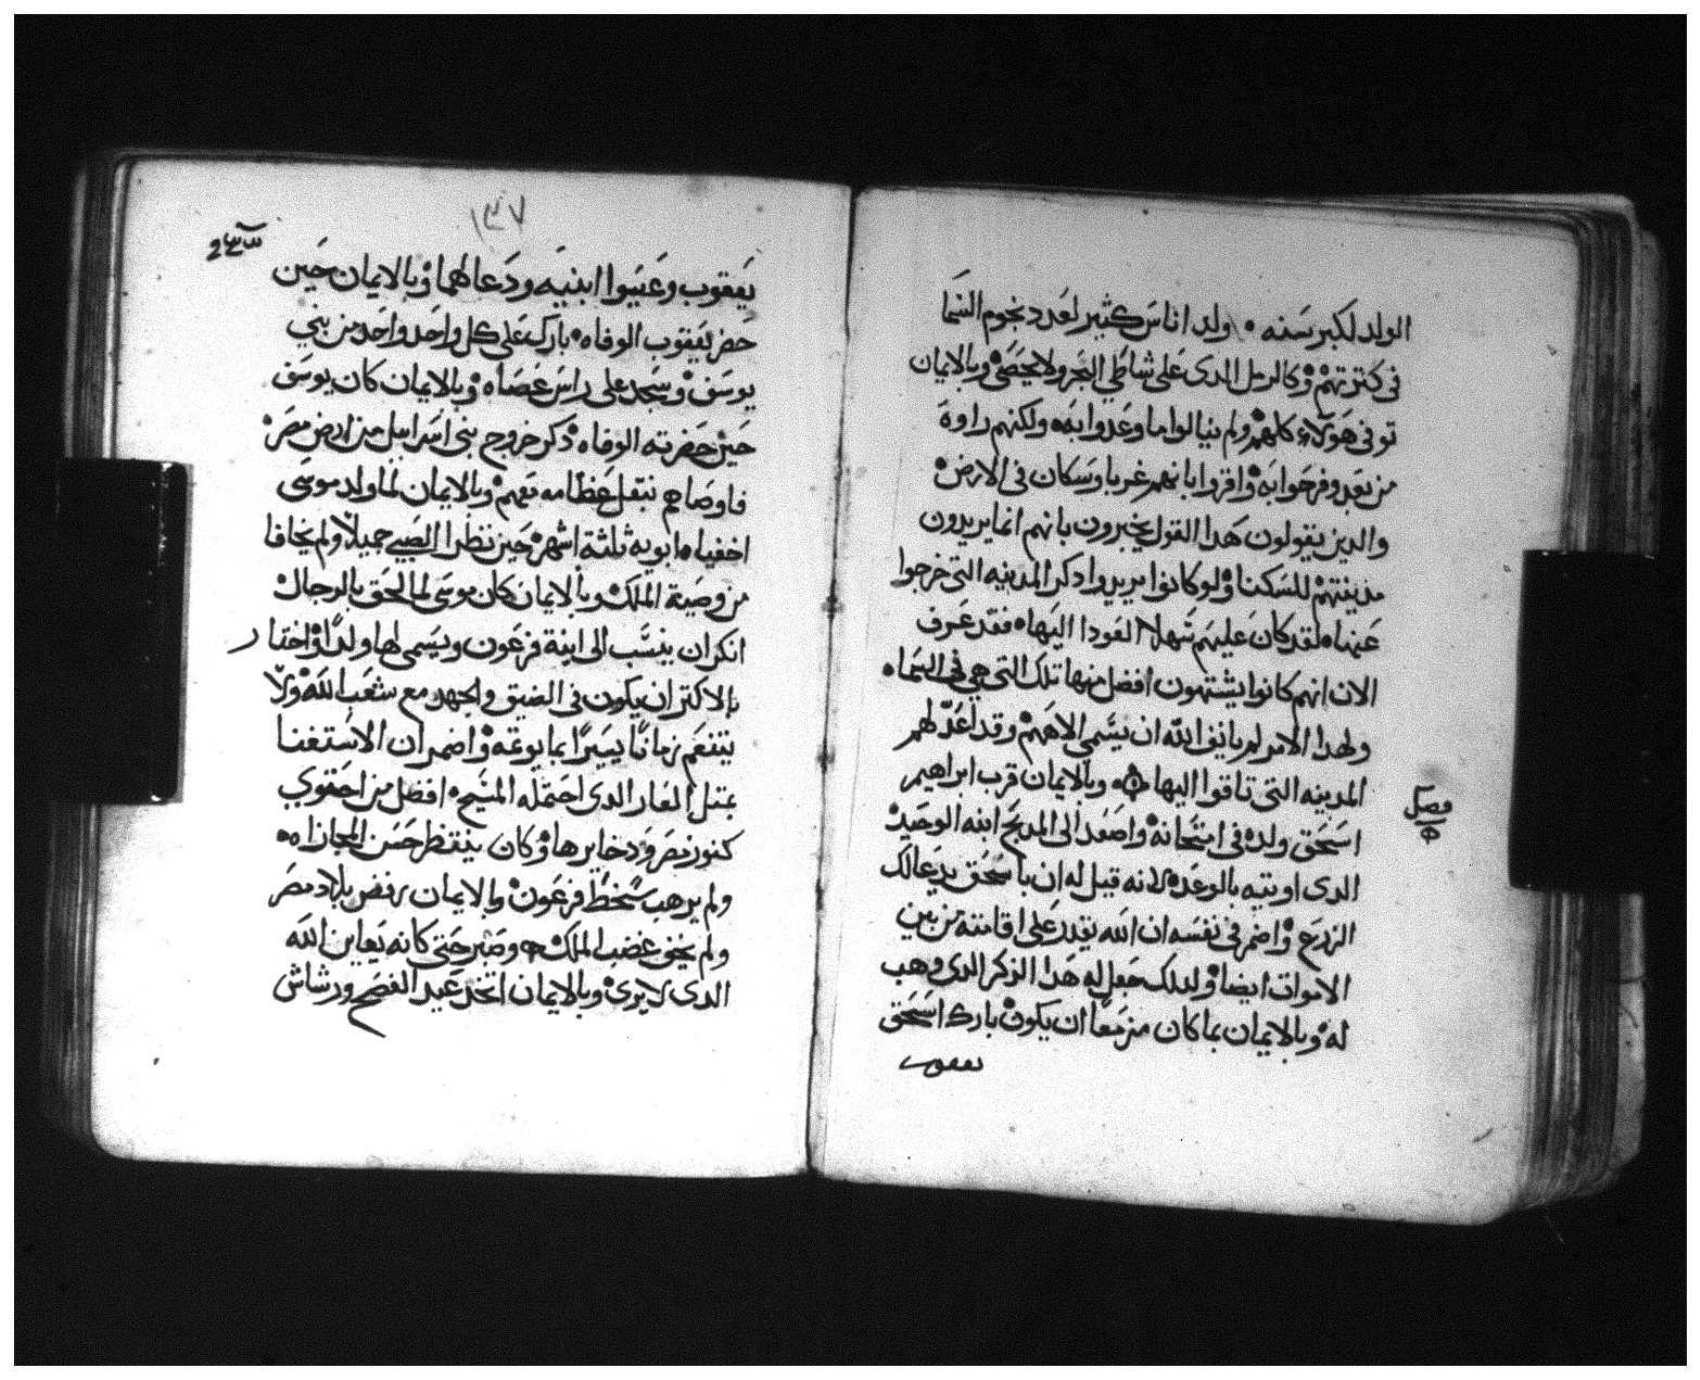 الولد لكبر سنه ٠ ولد اناس كثير لعدد نجوم السما
فى كترتهم وكالرمل الدى على شاطى البحر ولا يحصى وبالايمان
توفى هولاء كلهم ولم ينالوا ما وعدوا به ولكنهم راوه
من بعد وفرحوا به واقروا بانهم غربا وسكان فى الارض
والدين يقولون هدا القول يخبرون بانهم انما يريدون
مدينتهم للسكنا ولو كانوا يريدوا دكر المدينه التى خرجوا
عنها لقد كان عليهم سهلا العودا اليها فقد عرف
الان انهم كانوا يشتهون افضل منها تلك التى هي فى السماء
ولهدا الامر لم يانف الله ان يسمى الاههم وقد اعد لهم
المدينه التى تاقوا اليها وبالايمان قرب ابراهيم
فصل
اسحق ولده فى امتحانه واصعد الى المدبح ابنه الوحيد
الدى اوتيه بالوعد لانه قيل له ان باسحق يدعا لك
الزرع واضمر فى نفسه ان الله يقدر على اقامته من بين
الاموات ايضا ولدلك جعل له هدا الذكر الدى وهب
له وبالايمان بما كان مزمعا ان يكون بارك اسحق
يعقوب
١٣٧
يعقوب وعيسوا ابنيه ودعا لهما وبالايمان حين
حضر يعقوب الوفاه بارك على كل واحد واحد من بني
يوسف وسجد على راس عصاه وبالايمان كان يوسف
حين حضرته الوفاه ذكر خروج بنى اسراييل من ارض مصر
فاوصاهم بنقل عظامه معهم وبالايمان لما ولد موسى
اخفياه ابويه ثلثه اشهر حين نظرا الصبي جميلا ولم يخافا
من وصية الملك وبالايمان كان موسى لما لحق بالرجال
انكر ان ينسب الى ابنة فرعون ويسمى لها ولدا واختار
بالاكتر ان يكون فى الضيق والجهد مع شعب الله ولا
يتنعم زمانا يسيرا بما يوتمه واضمر ان الاستغنا
بمتل العار الدى احتمله المسيح افضل من احتوي
كنوز مصر ودخايرها وكان ينتظر حسن المجازاه
ولم يرهب سخط فرعون وبالايمان رفض بلاد مصر
ولم يخف غضب الملك وصبر حتى كانه يعاين الله
الدى لا يرى وبالايمان اتخد عيد الفصح ورشاش